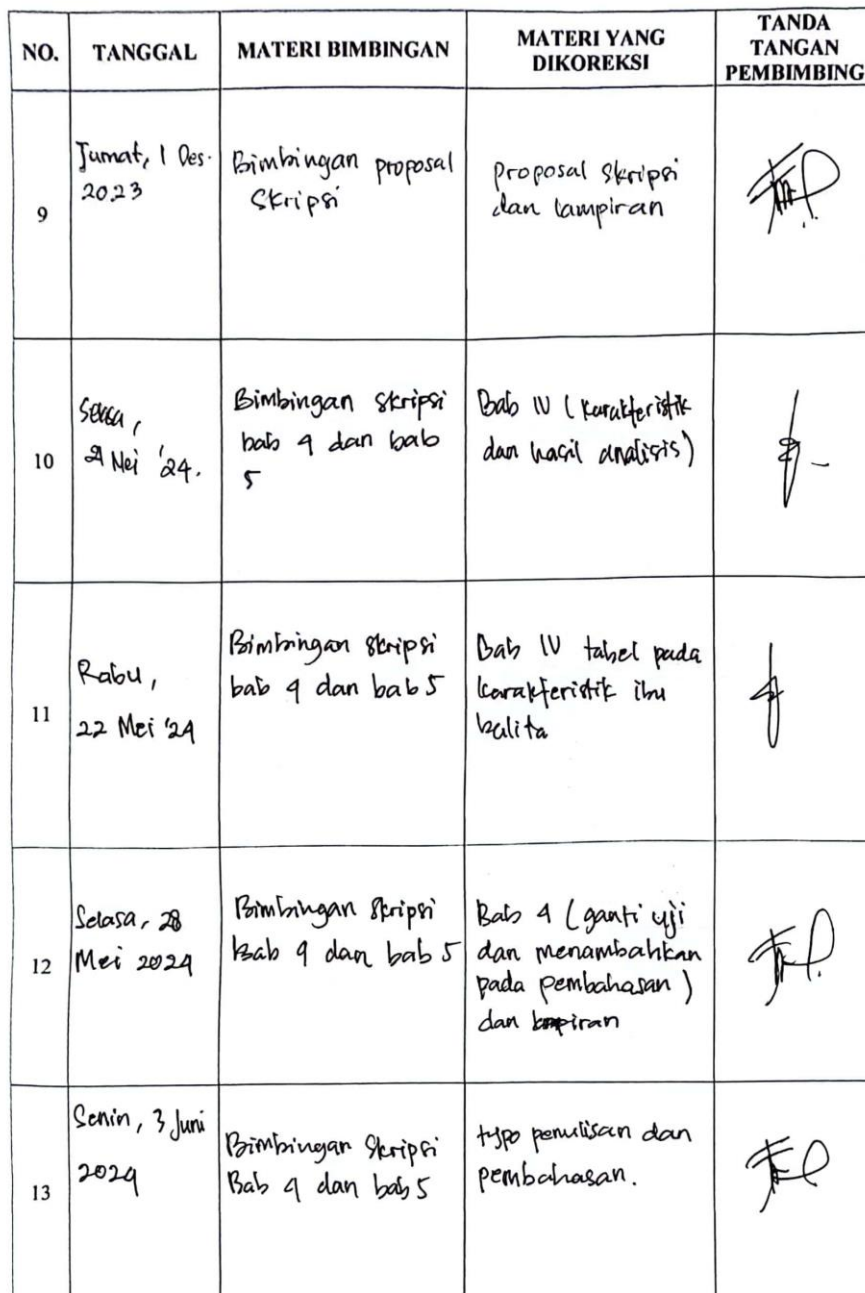 NO.
TANGGAL
MATERI BIMBINGAN
MATERI YANG
DIKOREKSI
TANDA
TANGAN
PEMBIMBING
9
Jumat, 1 Des.
2023
Bimbingan proposal
Skripsi
proposal skripsi
dan lampiran
10
Selasa,
21 Mei '24.
Bimbingan skripsi
bab 4 dan bab
5
Bab IV (karakteristik
dan hasil analisis)
11
Rabu,
22 Mei '24
Bimbingan skripsi
bab 4 dan bab 5
Bab IV tabel pada
karakteristik ibu
balita
12
Selasa, 28
Mei 2024
Bimbingan skripsi
Bab 4 dan bab 5
Bab 4 (ganti uji
dan menambahkan
pada pembahasan)
dan lampiran
13
Senin, 3 Juni
2024
Bimbingan Skripsi
Bab 4 dan bab 5
typo penulisan dan
pembahasan.